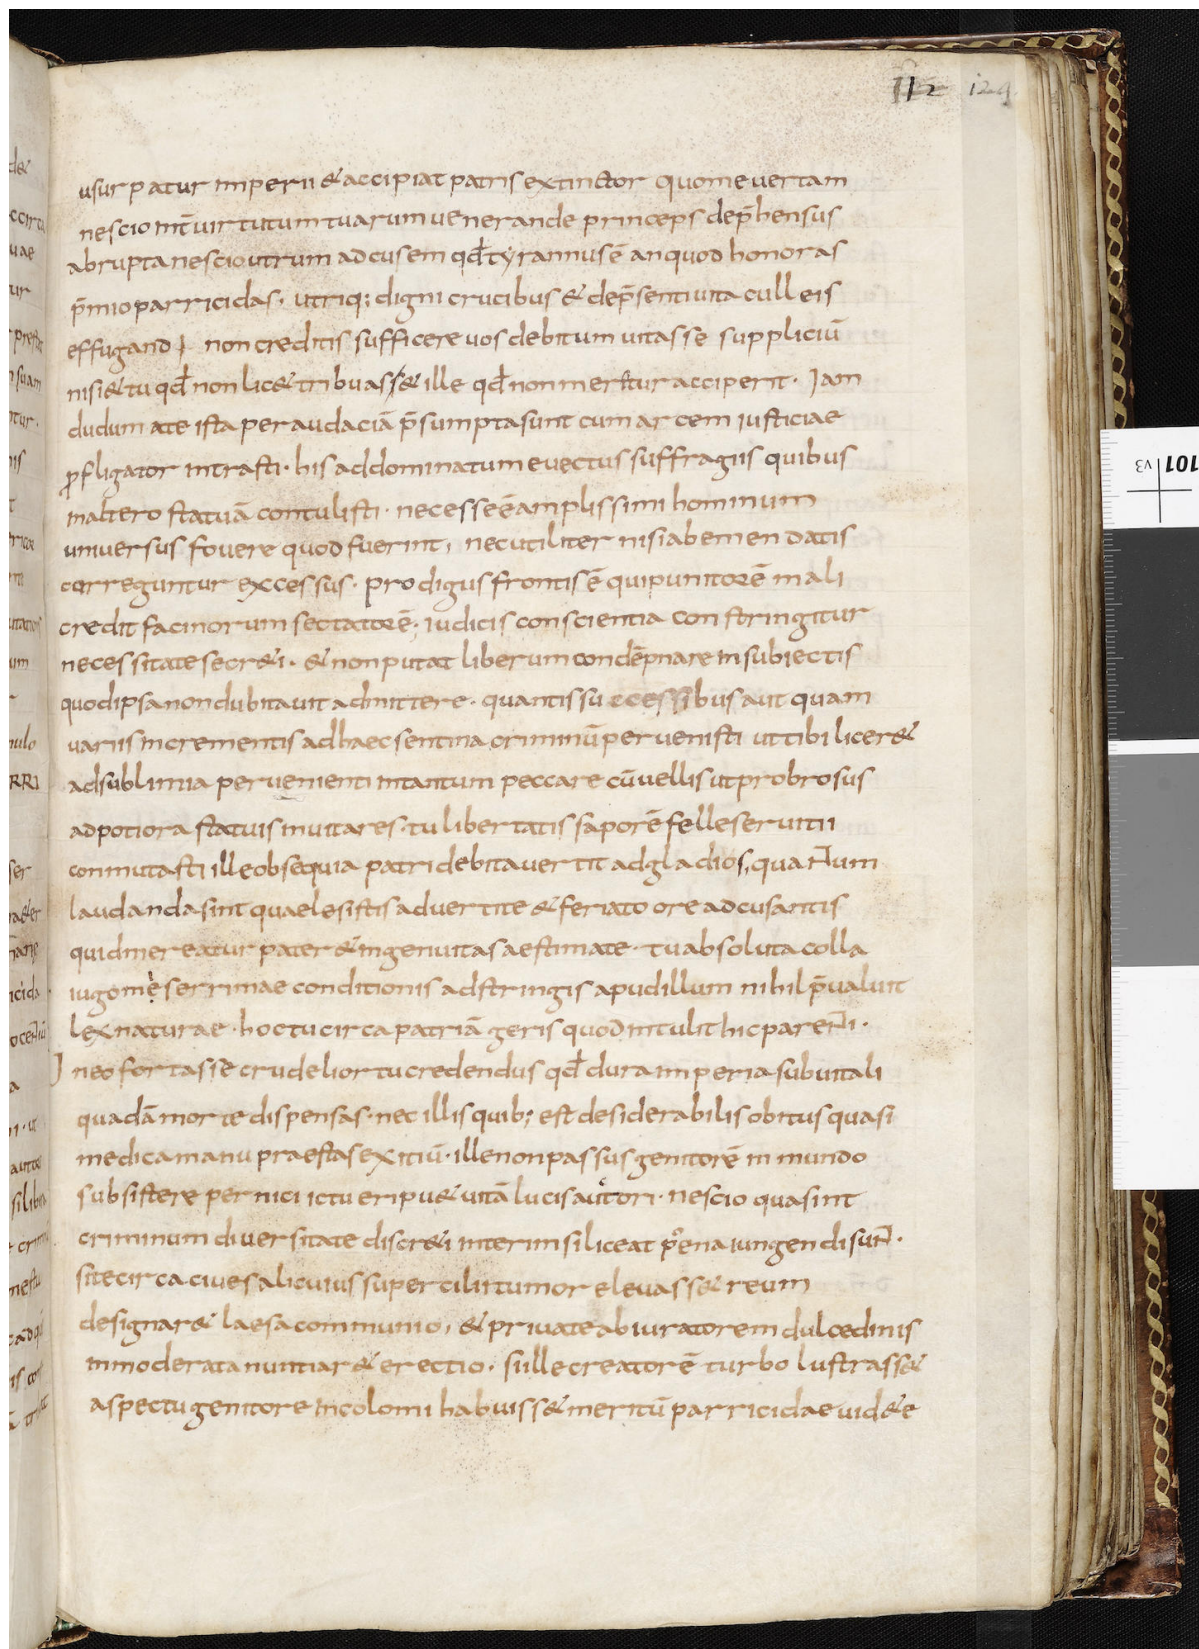 112 129
usurpatur imperii & accipiat patris extinctor quomeuertam
nescio int̄ uirtutum tuarum uenerande princeps dep̄hensus
abrupta nescio utrum adcusem qđ tyrannus ē an quod honoras
p̄mio parricidas· utriq; digni crucibus & dep̄senti uita culleis
effugandi non creditis sufficere uos debitum uitasse suppliciū
nisi & tu qđ non lic& tribuass& ille qđ non meretur acciperit· Jam
dudum a te ista per audaciā p̄sumpta sunt cum arcem iusticiae
profligator intrasti· his ad dominatum euectus suffragiis quibus
in altero statuā contulisti· necesse ē amplissimi hominum
uniuersus fouere quod fuerint, nec utiliter nisi ab emendatis
correguntur excessus· prodigus frontis ē qui punitorē mali
credit facinorum sectatorē· iudicis conscientia constringitur
necessitate secr&i· & non putat liberum condēpnare in subiectis
quod ipsa non dubitauit admittere· quantis successibus aut quam
uariis incrementis ad haec sentina criminū peruenisti ut tibi licer&
ad sublimia peruenienti in tantum peccare cū uellis ut probrosus
ad potiora statuis inuitares· tu libertatis saporē felle seruitii
conmutasti ille obsequia patri debita uertit ad gladios, quarum
laudanda sint quaelesistis aduertite & feriato ore adcusantis
quid mereatur pater & ingenuitas aestimate· tu absoluta colla
iugo meserrimae conditionis adstringis apud illum nihil p̄ualuit
lex naturae· hoc tu circa patriā geris quod intulit hic parenti·
J neo fortasse crudelior tu credendus qđ dura imperia sub uitali
quadā morte dispensas· nec illis quib; est desiderabilis obitus quasi
medica manu praestas exitiū· ille non passus genitorē in mundo
subsistere pernici ictu eripu& uitā lucis autori· nescio qua sint
criminum diuersitate discr&i interim si liceat poena iungendi sunt·
si te circa ciues alicuius supercilii tumor eleuass& reum
designar& laesa communio, & priuate abiuratorem dulcedinis
inmoderata nuntiar& erectio· si ille creatorē turbo lustrass&
aspectu genitore incolomi habuiss& meritū parricidae uid&e